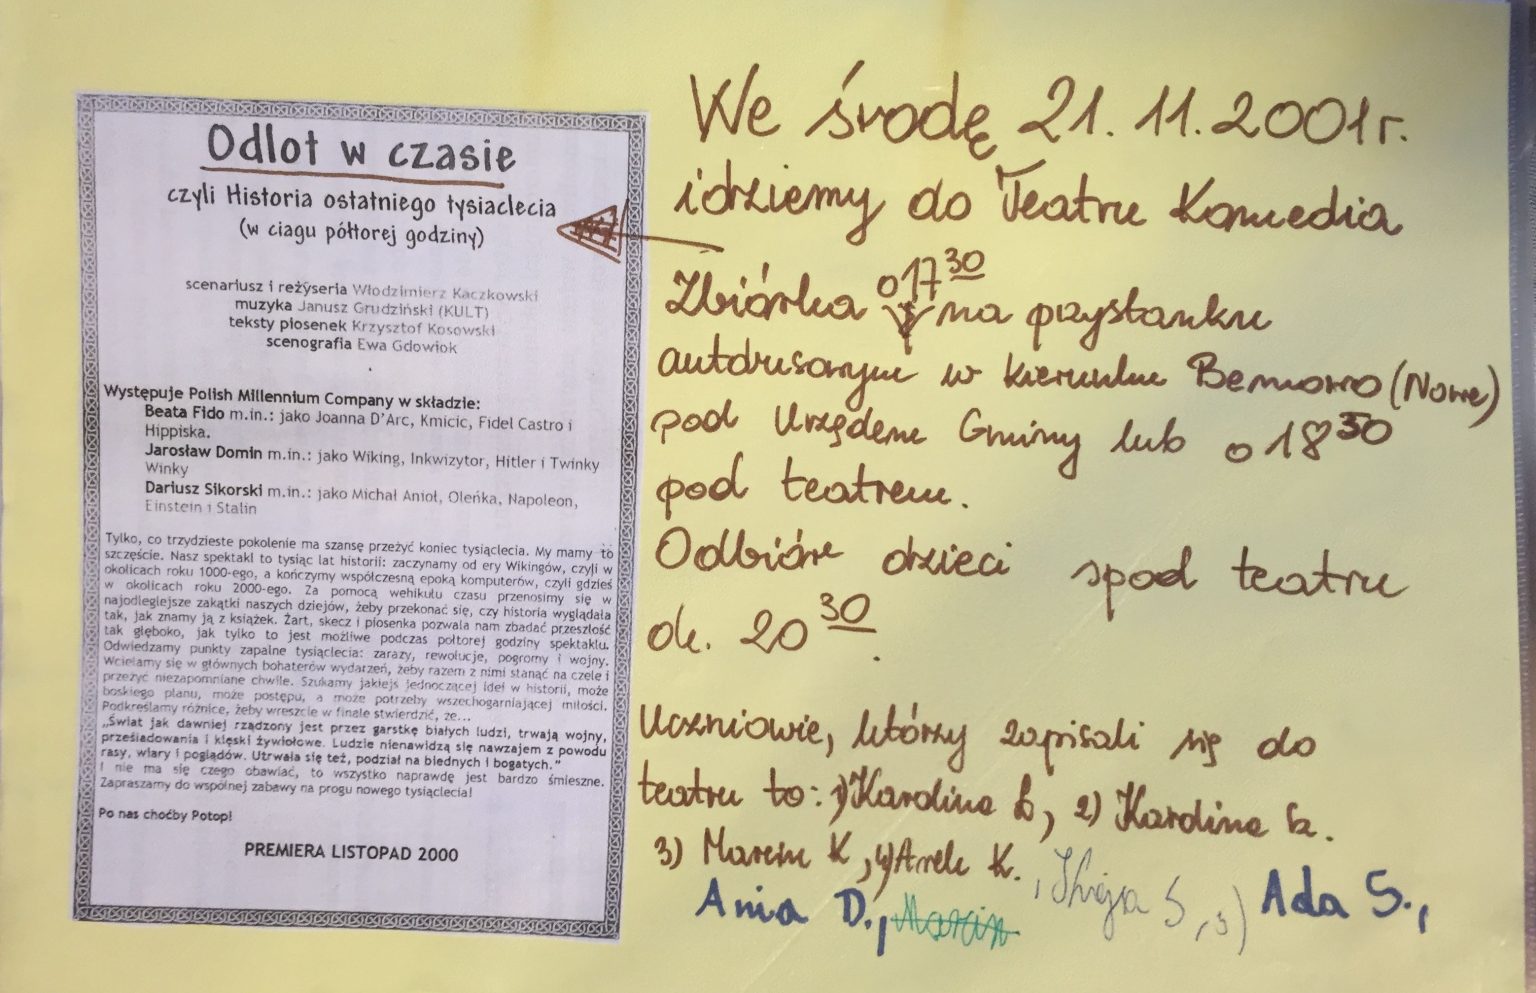 Odlot w czasie
czyli Historia ostatniego tysiaclecia
(w ciagu półtorej godziny)
scenariusz i reżyseria Włodzimierz Kaczkowski
muzyka Janusz Grudziński (KULT)
teksty piosenek Krzysztof Kosowski
scenografia Ewa Gdowiok
Występuje Polish Millennium Company w składzie:
Beata Fido m.in.: jako Joanna D'Arc, Kmicic, Fidel Castro i
Hippiska.
Jarosław Domin m.in.: jako Wiking, Inkwizytor, Hitler i Twinky
Winky
Dariusz Sikorski m.in.: jako Michał Anioł, Oleńka, Napoleon,
Einstein i Stalin
Tylko, co trzydzieste pokolenie ma szansę przeżyć koniec tysiąclecia. My mamy to
szczęście. Nasz spektakl to tysiąc lat historii: zaczynamy od ery Wikingów, czyli w
okolicach roku 1000-ego, a kończymy współczesną epoką komputerów, czyli gdzieś
w okolicach roku 2000-ego. Za pomocą wehikułu czasu przenosimy się w
najodleglejsze zakątki naszych dziejów, żeby przekonać się, czy historia wyglądała
tak, jak znamy ją z książek. Żart, skecz i piosenka pozwala nam zbadać przeszłość
tak głęboko, jak tylko to jest możliwe podczas półtorej godziny spektaklu.
Odwiedzamy punkty zapalne tysiąclecia: zarazy, rewolucje, pogromy i wojny.
Wcielamy się w głównych bohaterów wydarzeń, żeby razem z nimi stanąć na czele i
przeżyć niezapomniane chwile. Szukamy jakiejś jednoczącej idei w historii, może
boskiego planu, może postępu, a może potrzeby wszechogarniającej miłości.
Podkreślamy różnice, żeby wreszcie w finale stwierdzić, że...
„Świat jak dawniej rządzony jest przez garstkę białych ludzi, trwają wojny,
prześladowania i klęski żywiołowe. Ludzie nienawidzą się nawzajem z powodu
rasy, wiary i poglądów. Utrwala się też, podział na biednych i bogatych."
I nie ma się czego obawiać, to wszystko naprawdę jest bardzo śmieszne.
Zapraszamy do wspólnej zabawy na progu nowego tysiąclecia!
Po nas choćby Potop!
PREMIERA LISTOPAD 2000
We środę 21.11.2001r.
idziemy do Teatru Komedia
Zbiórka o 17 30 na przystanku
autobusowym w kierunku Bemowo (Nowe)
pod Urzędem Gminy lub o 18 30
pod teatrem.
Odbiór dzieci spod teatru
ok. 20 30.
Uczniowie, którzy zapisali się do
teatru to: 1) Karolina Ł, 2) Karolina
3) Marcin K, 4) Arek K.
Ania D., Marcin , S, Ada S.,